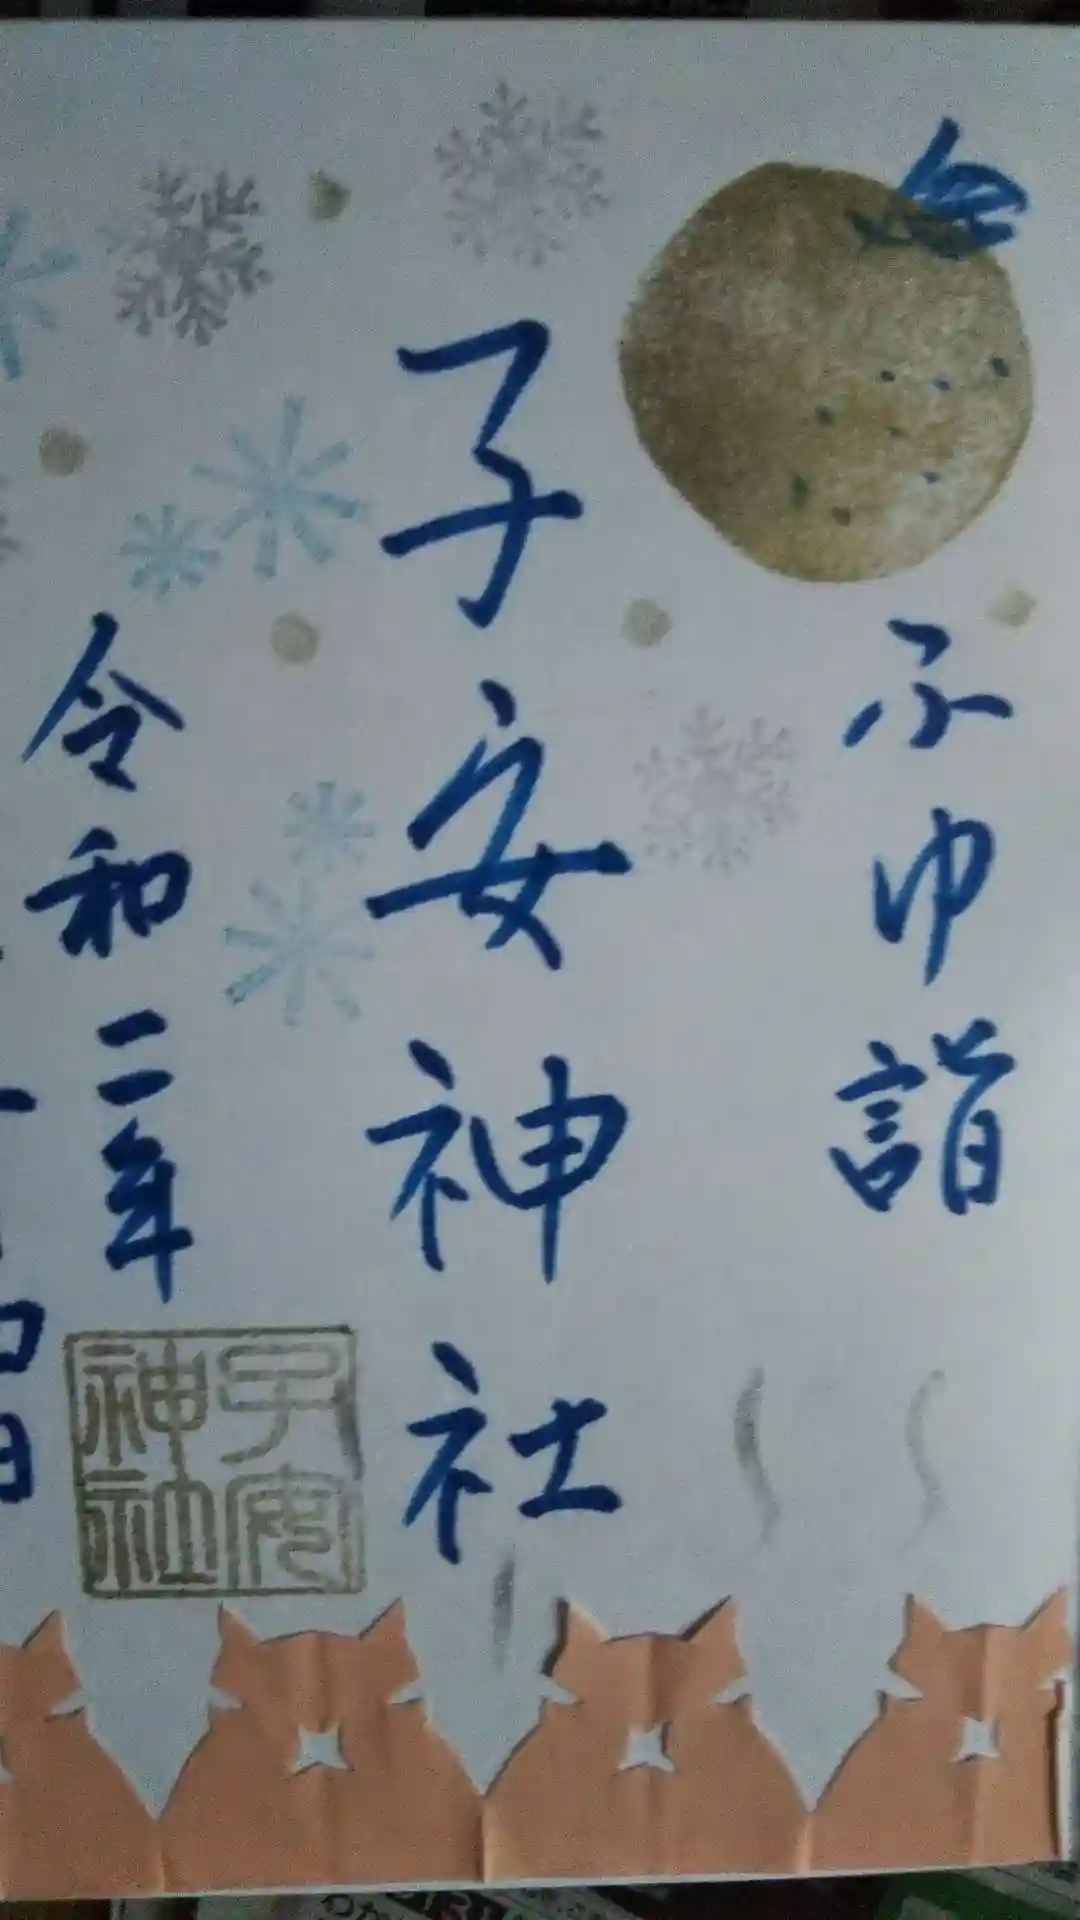 ふゆ詣
子安神社
令和二年
子安神社